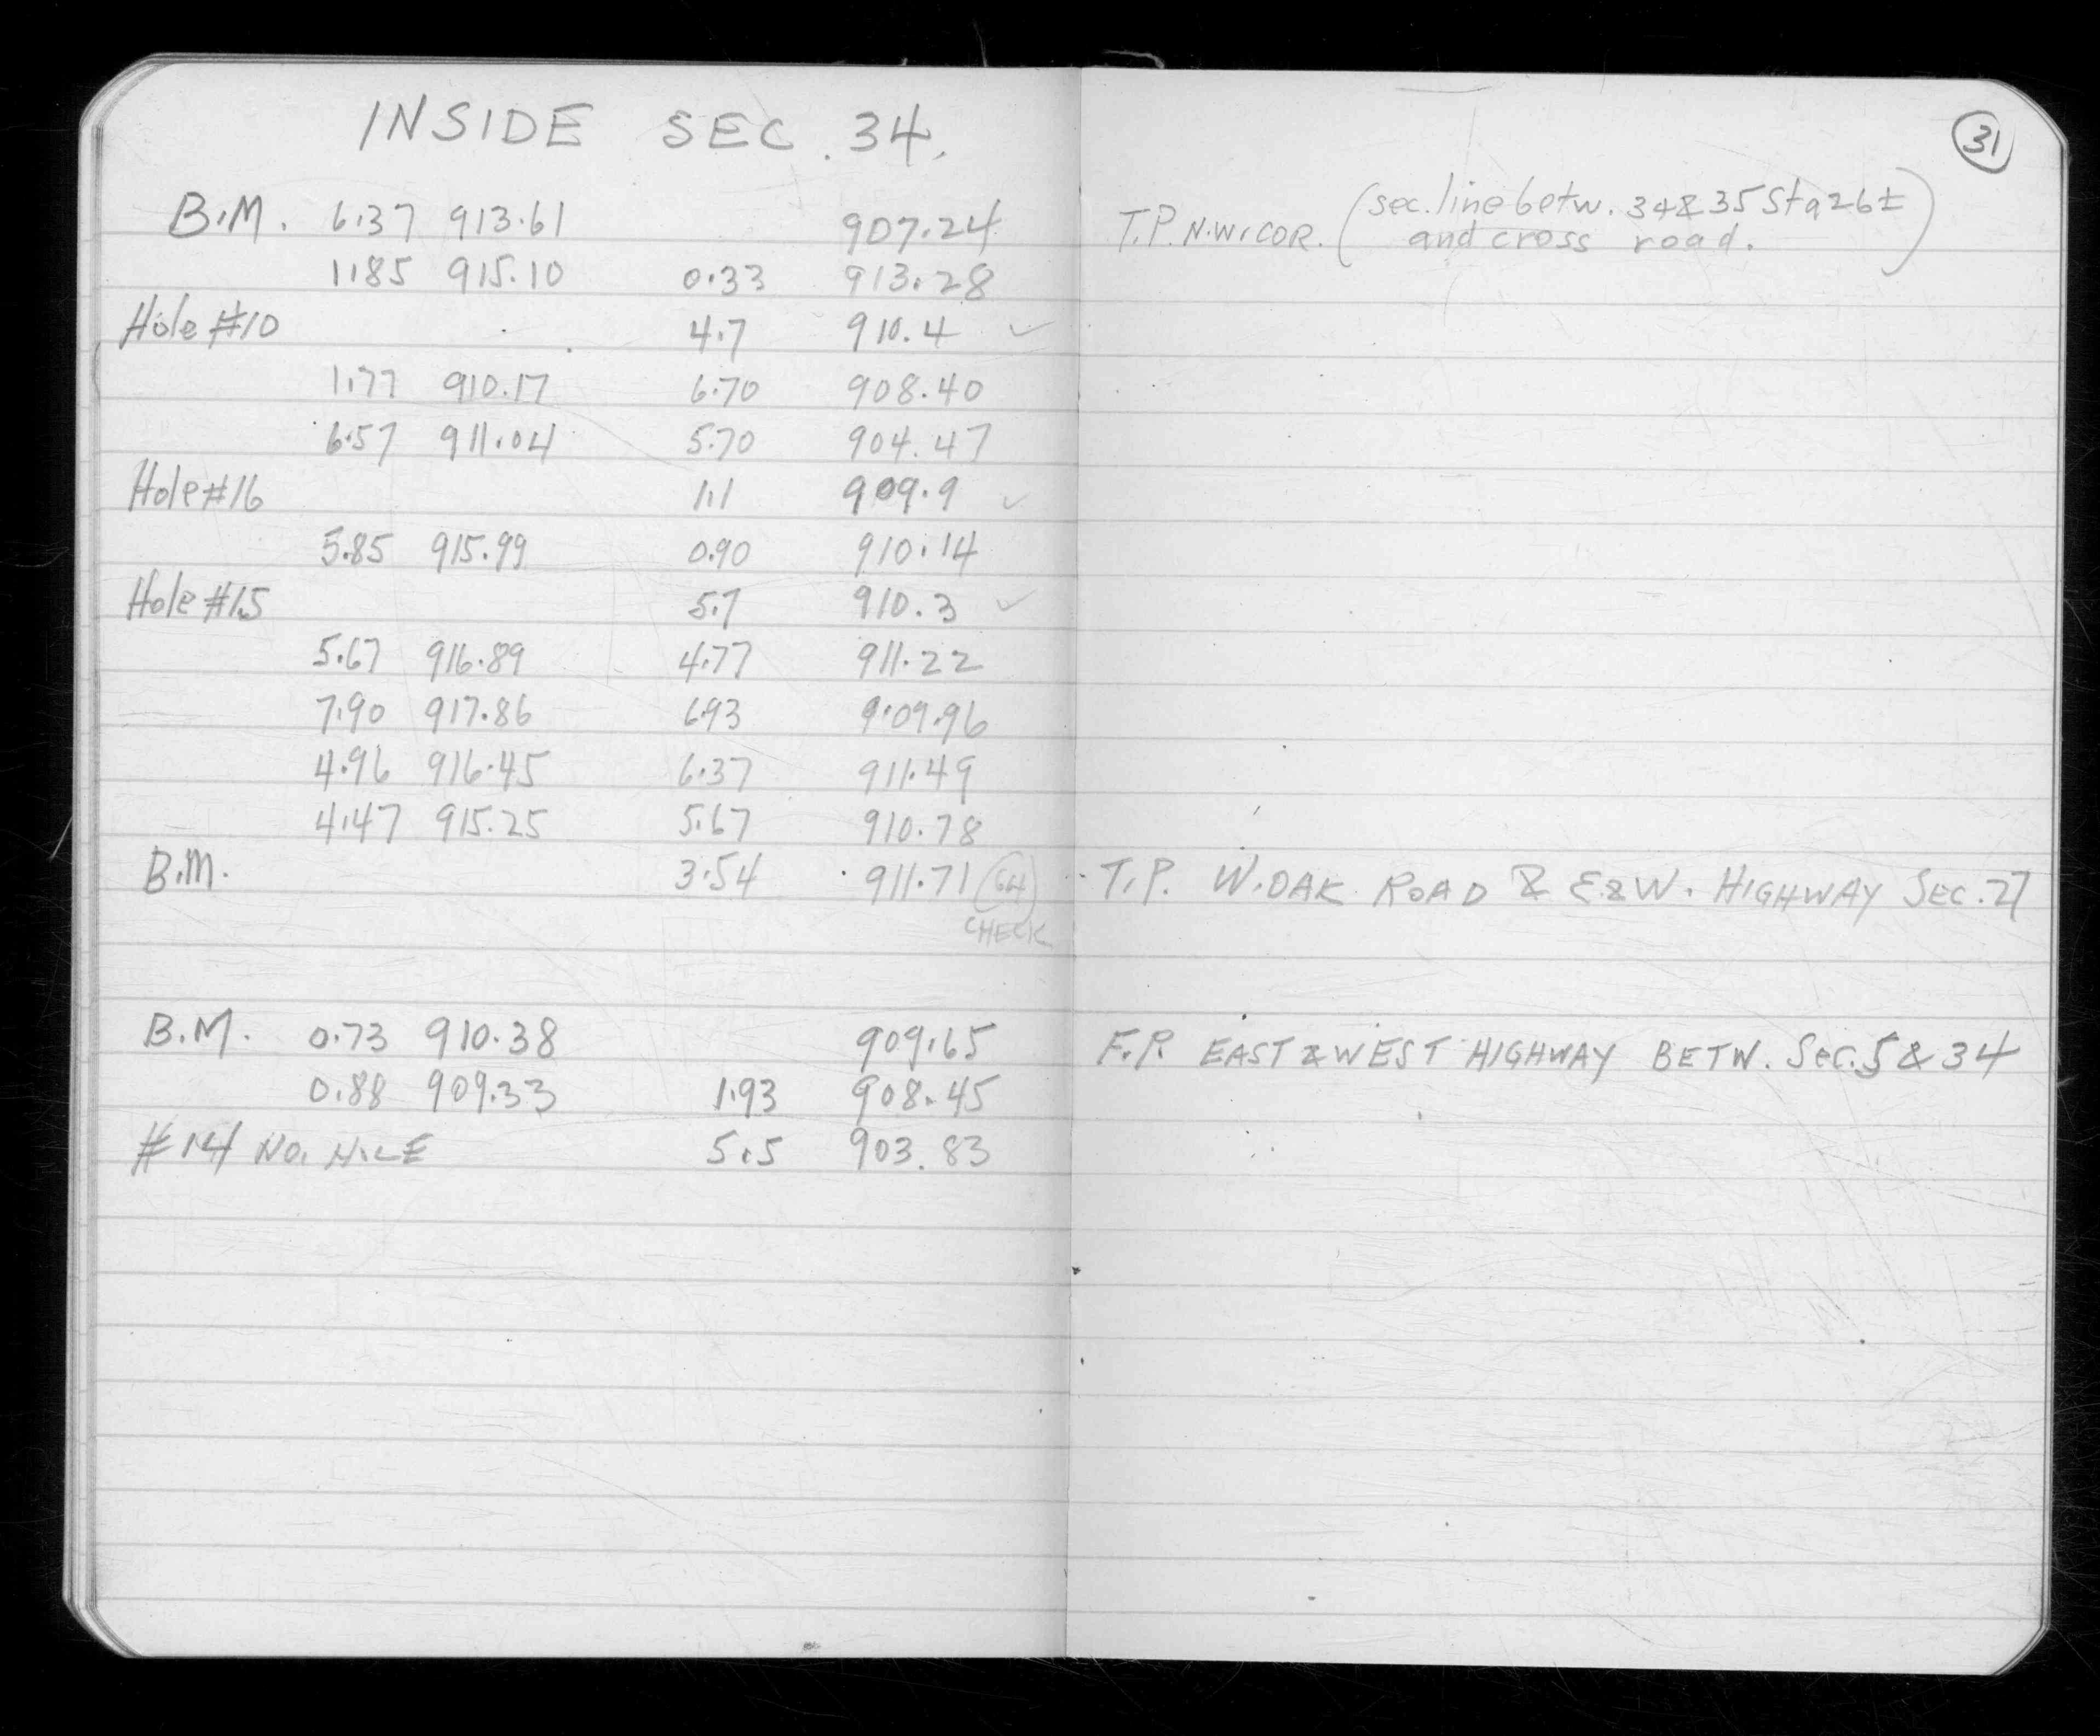 INSIDE SEC. 34.
B.M. 6.37 913.61 907.24
1.85 915.10 0.33 913.28
Hole #10 4.7 910.4 ✓
1.77 910.17 6.70 908.40
6.57 911.04 5.70 904.47
Hole #16 1.1 909.9 ✓
5.85 915.99 0.90 910.14
Hole #15 5.7 910.3 ✓
5.67 916.89 4.77 911.22
7.90 917.86 6.93 909.96
4.96 916.45 6.37 911.49
4.47 915.25 5.67 910.78
B.M. 3.54 911.71 64
CHECK
B.M. 0.73 910.38 909.65
0.88 909.33 1.93 908.45
#14 NO. 5.5 903.83
31
T.P. N.W. COR. (sec. line betw. 34 & 35 Sta 26±
and cross road.)
T.P. W. OAK ROAD & E. & W. HIGHWAY SEC. 27
F.P. EAST & WEST HIGHWAY BETW. Sec. 5 & 34